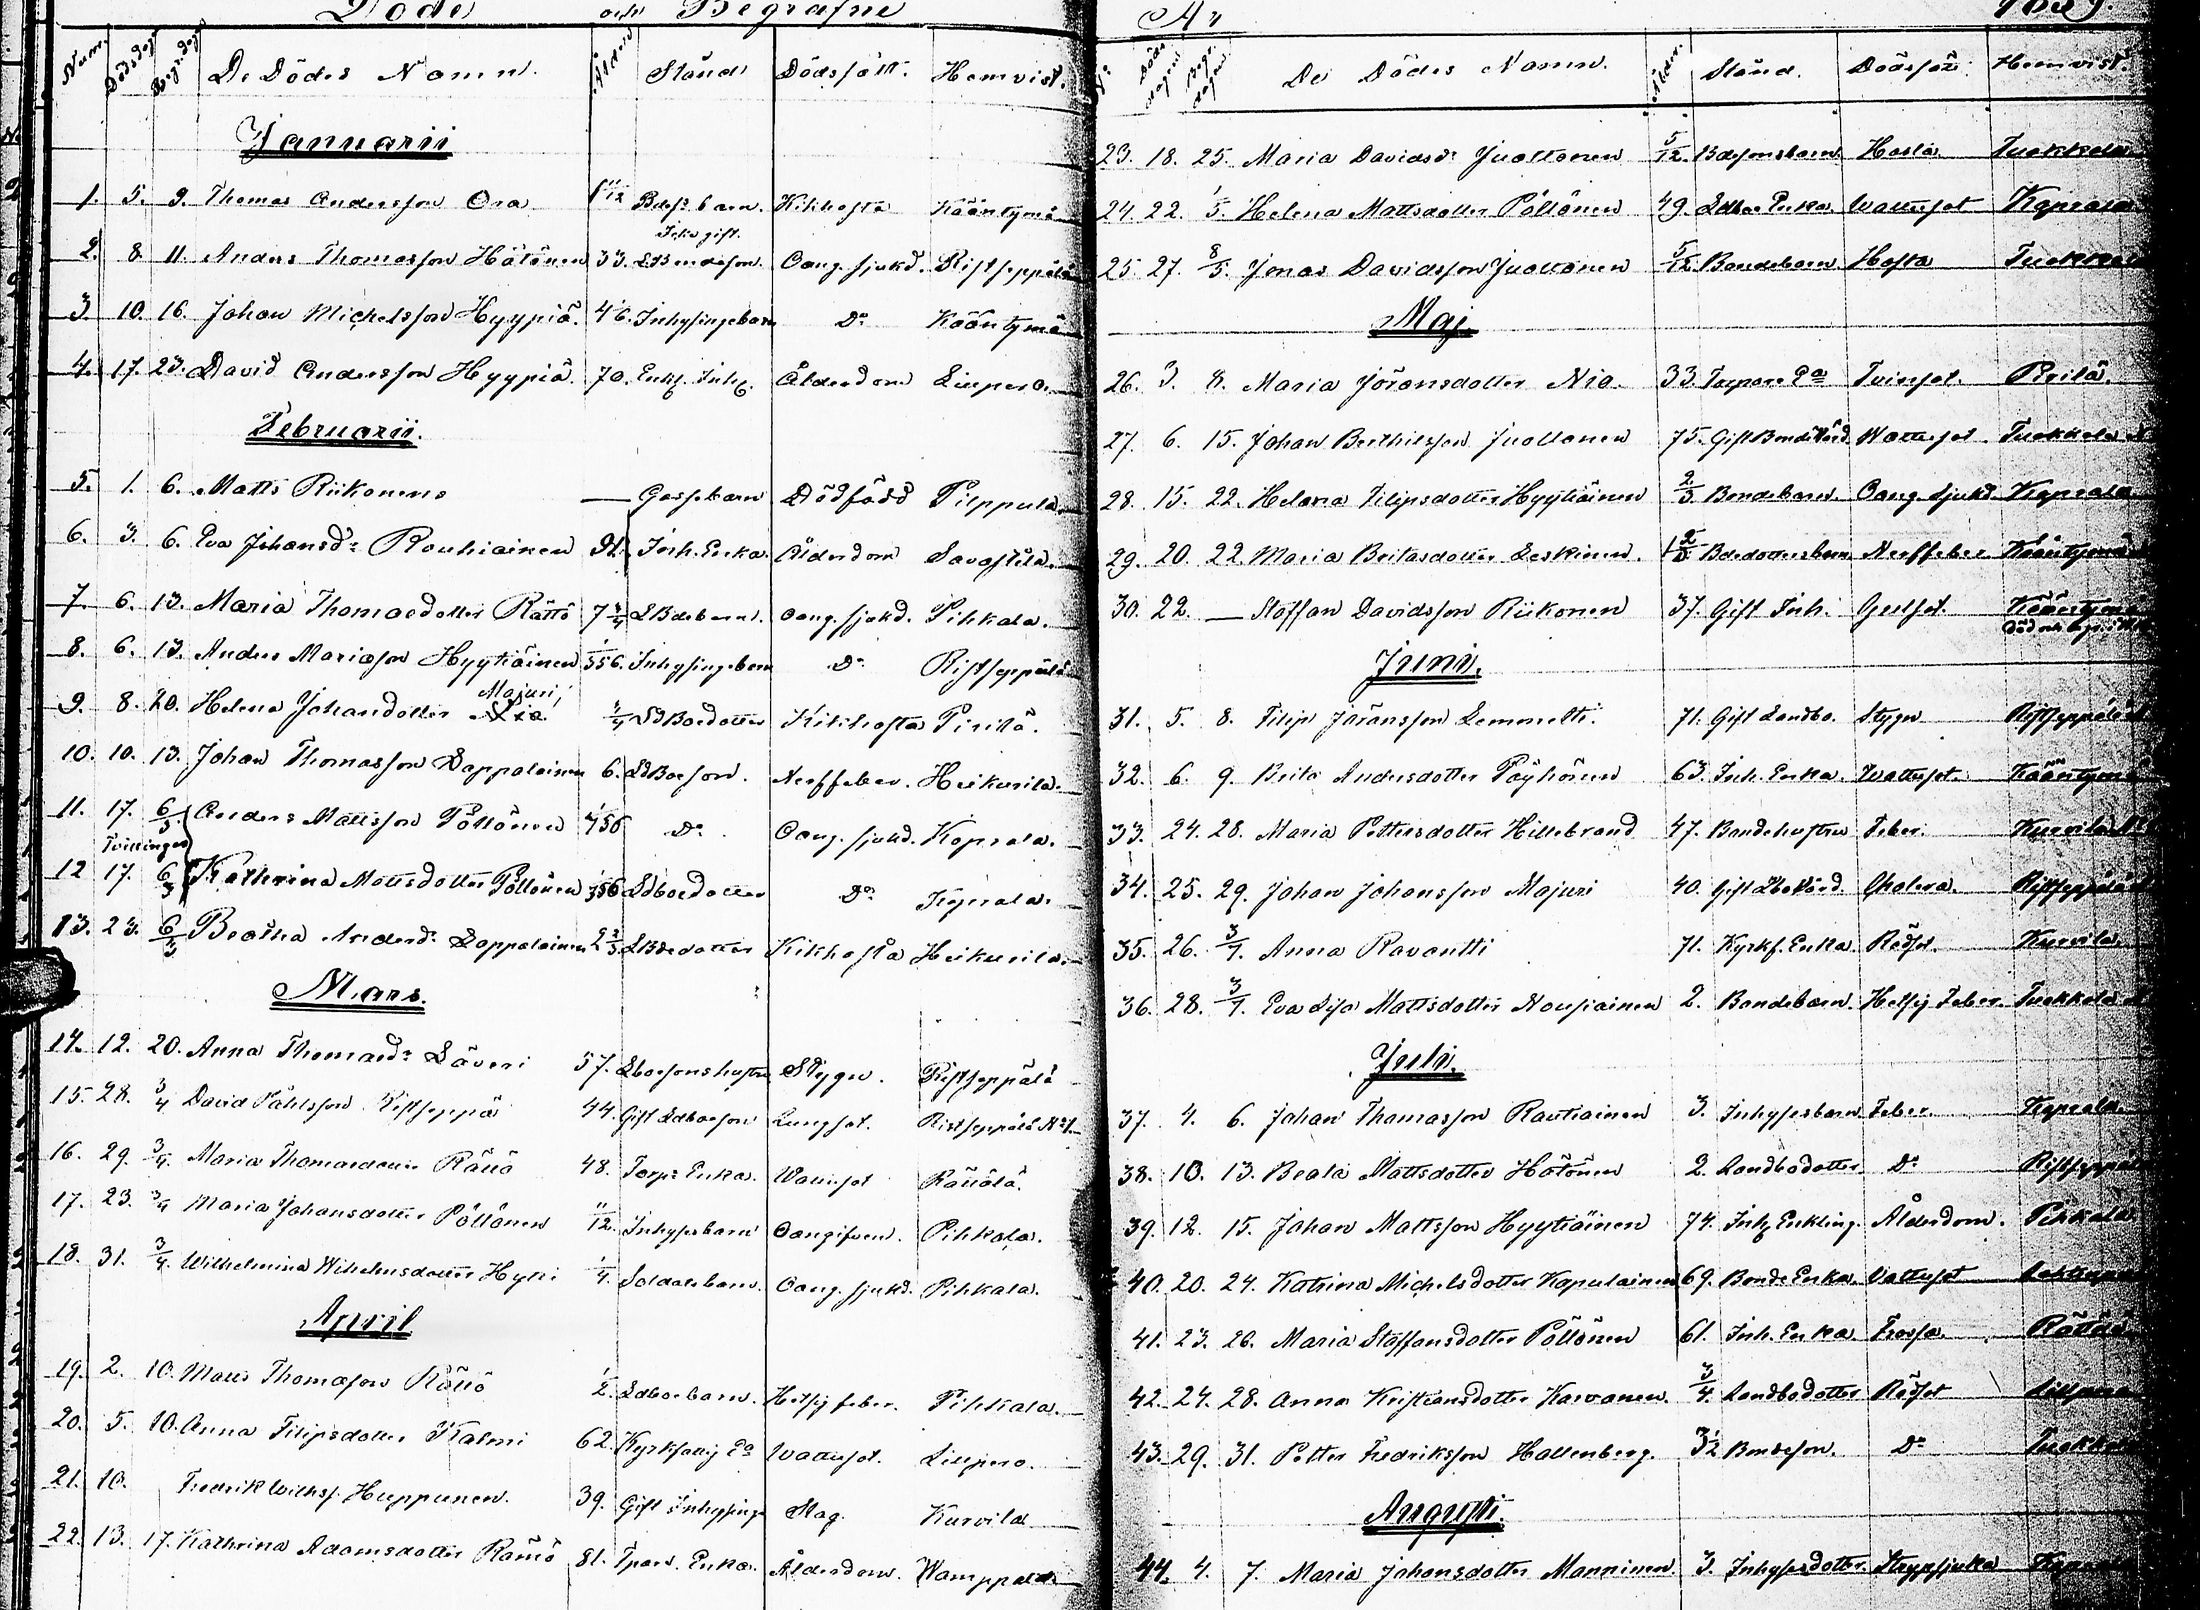 Döde och Begrafne
Num. Dödsdag Begr.dag De Dödes Namn. Ålder Stånd Dödssätt. Hemvist.
Januarii
1. 5. 9. Thomas Andersson Ora 1 11/12 Bdes. barn. Kikhosta Kääntymä
2. 8. 11. Anders Thomasson Hätönen 33. gift. Oang. sjukd. Ristseppälä
3 10. 16. Johan Michelsson Hyypiä. 46. Inhysingebarn Do Kääntymä
4. 17. 23. David Andersson Hyypiä. 70. Enkl. Inh. Ålderdom Liipero.
Februarii.
5. 1. 6. Matts Riikonens — Gossebarn Dödfödd Pilppula.
6. 3. 6. Eva Johansdr Rouhiainen Inh. Enka. Ålderdom Savostila.
7 6. 13. Maria Thomasdotter Rättö 7 LBdebarn. Oang. sjukd. Pihkala.
8. 6. 13. Anders Mariasson Hyytiäinen Inhysingebarn Do Ristseppälä
9. 8. 20. Helena Johansdotter Majuri 3/4 LdBoedotter Kikhosta Pirilä.
10. 10. 13. Johan Thomasson Lappalainen 6. LdBoeson. Nerffeber. Heikurila.
11. 17. 6/3 Anders Mattsson Pöllönen Do Oang. sjukd. Koprala.
Tvillingar
12 17. 6/3 Kathrina Mattsdotter Pöllönen Ldboedotter Do Koprala.
13. 23. 6/3 Beatha Andersdr Lappalainen 2 2/3 LBdedotter Kikhosta Heikurila.
Mars.
14. 12. 20. Anna Thomasdr Läveri 57. Lboesonshustru Stygn. Ristseppälä
15. 28. 3/4 David Påhlsson Ristseppä 44. Gift Ldboeson Lungsot. Ristseppälä No 1.
16. 29. 3/4. Maria Thomasdotter Rättö 48. Torp. Enka. Wattusot Rättölä.
17. 23. 3/4 Maria Johansdotter Pöllönen 11/12. Inhysesbarn Oangifven. Pihkala.
18. 31. 3/4. Wilhelmina Wilhelmsdotter Hytti 1/4. Soldatebarn. Oang. sjukd. Pihkala.
April
19. 2. 10. Matts Thomasson Rättö 1/2. Ldboebarn. Hetsig feber. Pihkala.
20. 5. 10. Anna Filipsdotter Kalmi 62. Kyrkfattig Ea Wattusot. Liipero.
21. 10. Fredrik Wilhs. Huppunen. 39. Gift Inhysing Slag. Kurvila
22. 13. 17. Kathrina Adamsdotter Rämö 81. Tparv. Enka. Ålderdom. Wamppala
År 1859.
No Döds dagen Begr. dagen De Dödes Namn. Ålder. Stånd. Dödssätt. Hemvist.
23. 18. 25. Maria Davidsdr Juoltonen 5/12. Bdesonsbarn Hosta Tuokkola
24. 22. 1/5. Helena Mattsdotter Pöllönen 49. Ldboe Enka. Wattusot Koprala
25. 27. 8/5. Jonas Davidsson Juoltonen 5/12. Bondebarn Hosta Tuokkola
Maj
26. 3. 8. Maria Jöransdotter Nio. 33. Torpare Ea Tvinsot. Pirilä.
27. 6. 15. Johan Berthilsson Juoltonen 75. Gift Bonde Wattusot. Tuokkola
28. 15. 22. Helena Filipsdotter Hyytiäinen 2/3 Bondebarn. Oang. Sjukd. Koprala
29. 20. 22. Maria Britasdotter Leskinen. Bdedottersbarn Nerffeber Kääntymä
30. 22. — Staffan Davidsson Riikonen 37. Gift Inh. Gulsot. Kääntymä
Juni.
31. 5. 8. Filip Jöransson Lemmetti. 71. Gift Landbo. Stygn Ristseppälä
32. 6. 9. Brita Andersdotter Pöyhönen 63. Inh. Enka. Wattusot. Kääntymä
33. 24. 28. Maria Pettersdotter Hillebrand 47. Bondehustru Feber. Kurvila
34. 25. 29. Johan Johansson Majuri 40. Gift Cholera. Ristseppälä
35. 26. 3/7. Anna Ravantti 71. Kyrkf. Enka. Rödsot. Kurvila.
36. 28. 3/7. Eva Lisa Mattsdotter Noupainen 2. Bondebarn. Hetsig Feber. Tuokkola
Juli.
37. 4. 6. Johan Thomasson Rautiainen 3. Inhysesbarn Feber. Koprala.
38. 10. 13. Beata Mattsdotter Hätönen 2. Landbodotter Do Ristseppälä
39. 12. 15. Johan Mattsson Hyytiäinen 74. Inh. Enkling. Ålderdom. Pihkala
40. 20. 24. Katrina Michelsdotter Kapulainen 69. Bonde Enka. Vattusot
41. 23. 26. Maria Staffansdotter Pöllönen 61. Inh. Enka Frossa. Rättölä
42. 24. 28. Anna Kristiansdotter Karvanen. 3/4. Landbodotter Rödsot
43. 29. 31. Petter Fredriksson Hallenberg. 3 1/2 Bondeson. Do Tuokkola
Augusti.
44. 4. 7. Maria Johansdotter Manninen. 3. Inhysesdotter. Strypsjuka Koprala